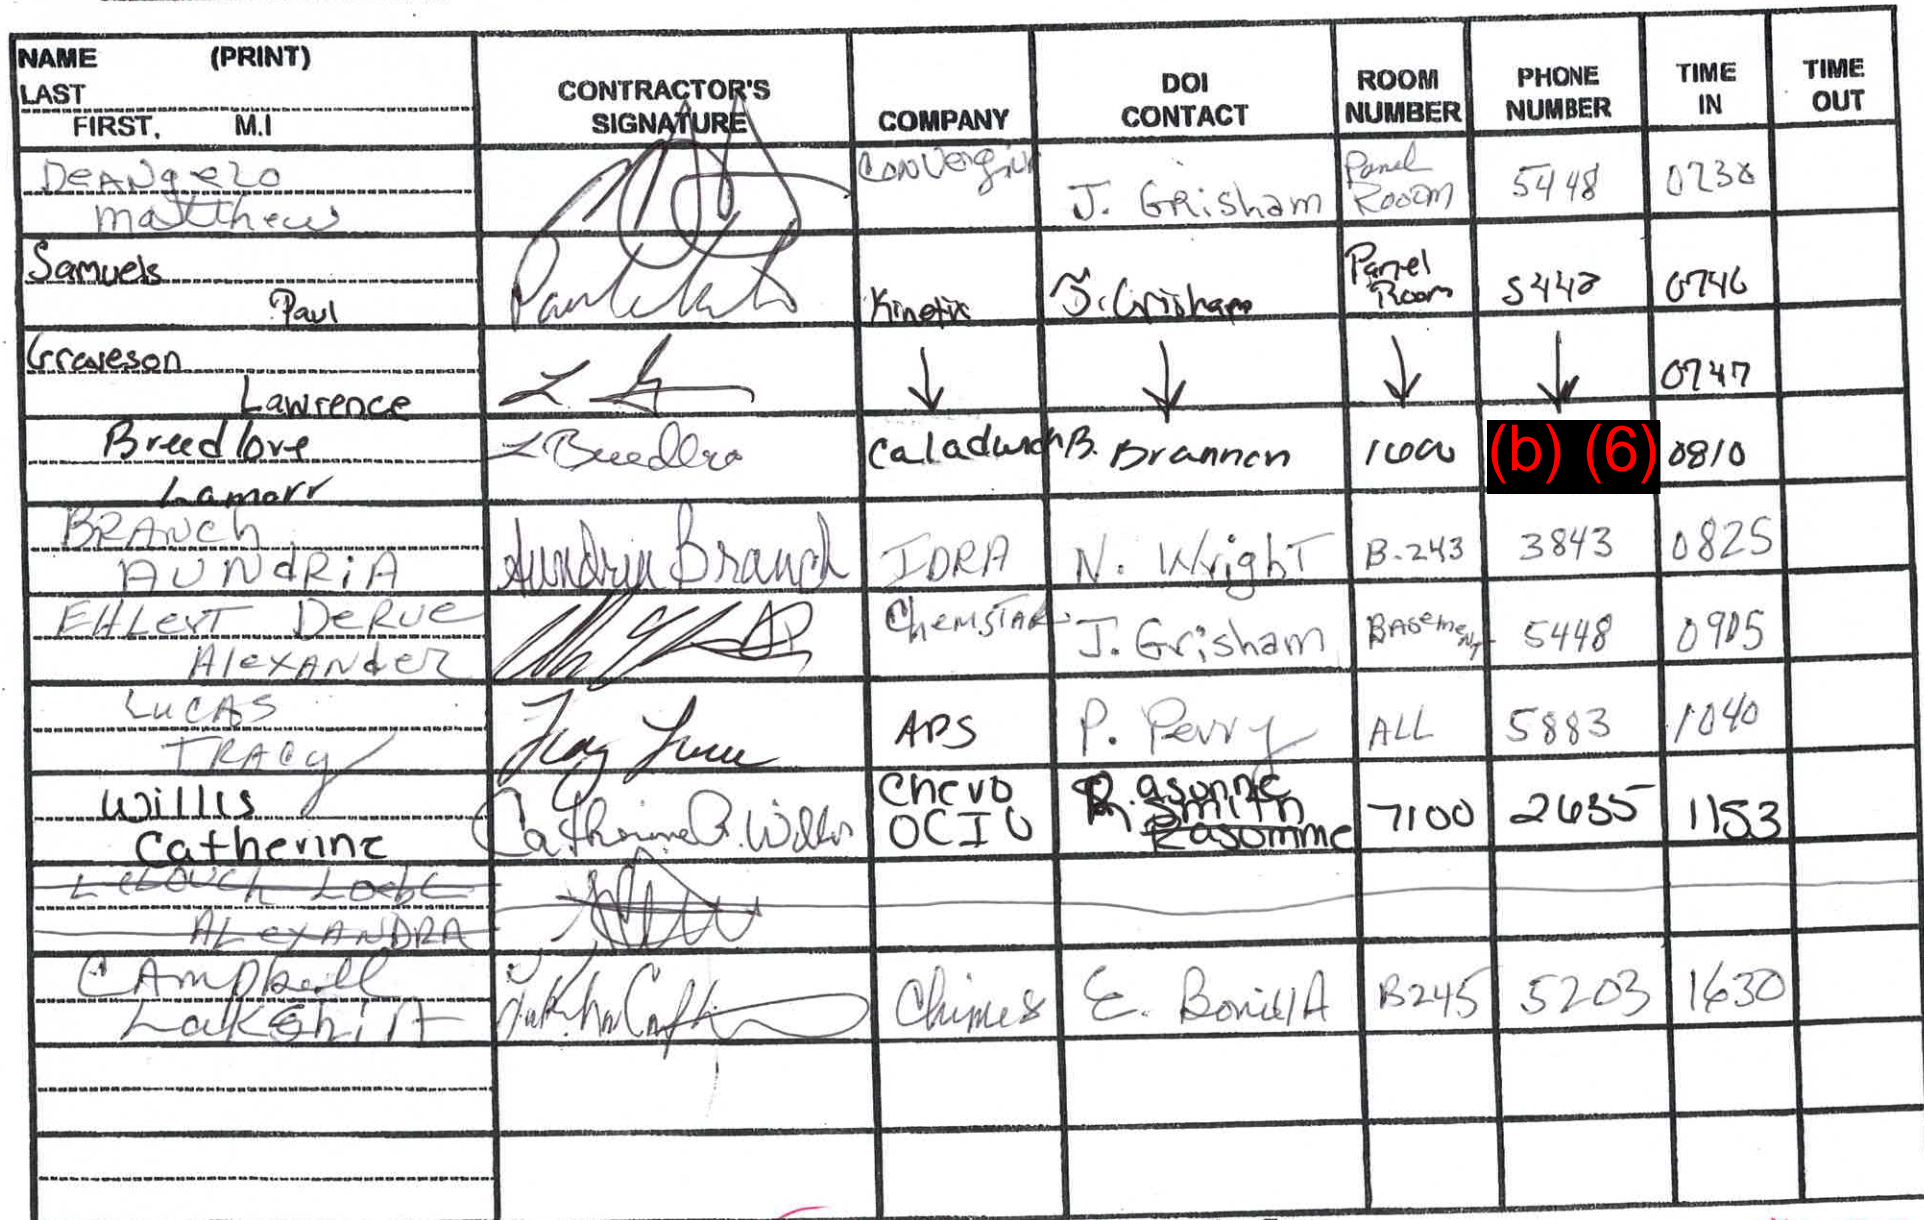 NAME (PRINT)
LAST
FIRST, M.I
CONTRACTOR'S
SIGNATURE
COMPANY
DOI
CONTACT
ROOM
NUMBER
PHONE
NUMBER
TIME
IN
TIME
OUT
DeANgelo
Matthew
Convergint
J. GRisham
Panel
Room
5448
0738
Samuels
Paul
Kinetix
J. Grisham
Panel
Room
5448
0746
Graveson
Lawrence
↓
↓
↓
↓
0747
Breedlove
Lamarr
L Breedlove
B. Brannon
(b) (6)
0810
BRANCh
AUNdRiA
Aundria Branch
IDRA
N. Wright
B-243
3843
0825
EHLerT DeRUe
AlexANder
ChemSTAR
J. Grisham
BASemeNT
5448
0905
LuCAS
TRACy
APS
P. Perry
ALL
5883
1040
Willis
Catherine
Catherine Willis
Chevo
OCIO
R. Smith
7100
2635
1153
ALeXANDRA
CAmpbell
Chimes
E. BonillA
B245
5203
1630